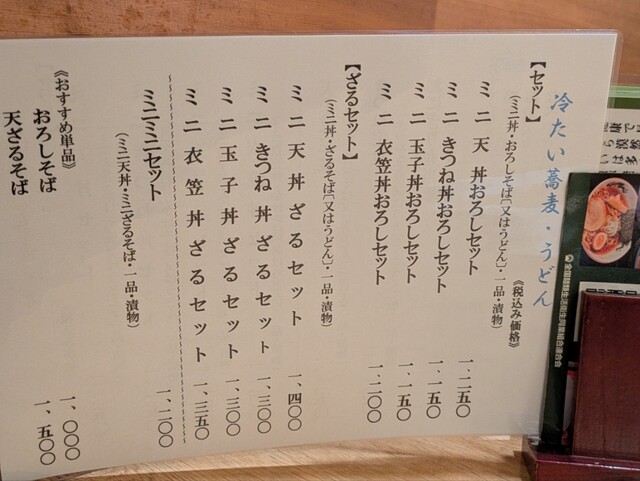 冷たい蕎麦・うどん
《税込み価格》
【セット】
(ミニ丼・おろしそば〔又はうどん〕・一品・漬物)
ミニ天丼おろしセット 一、二五〇
ミニきつね丼おろしセット 一、一五〇
ミニ玉子丼おろしセット 一、一五〇
ミニ衣笠丼おろしセット 一、二〇〇
【ざるセット】
(ミニ丼・ざるそば〔又はうどん〕・一品・漬物)
ミニ天丼ざるセット 一、四〇〇
ミニきつね丼ざるセット 一、三〇〇
ミニ玉子丼ざるセット 一、三〇〇
ミニ衣笠丼ざるセット 一、三五〇
ミニミニセット 一、二〇〇
(ミニ天丼・ミニざるそば・一品・漬物)
《おすすめ単品》
おろしそば 一、〇〇〇
天ざるそば 一、五〇〇
全国麺類生活衛生同業組合連合会